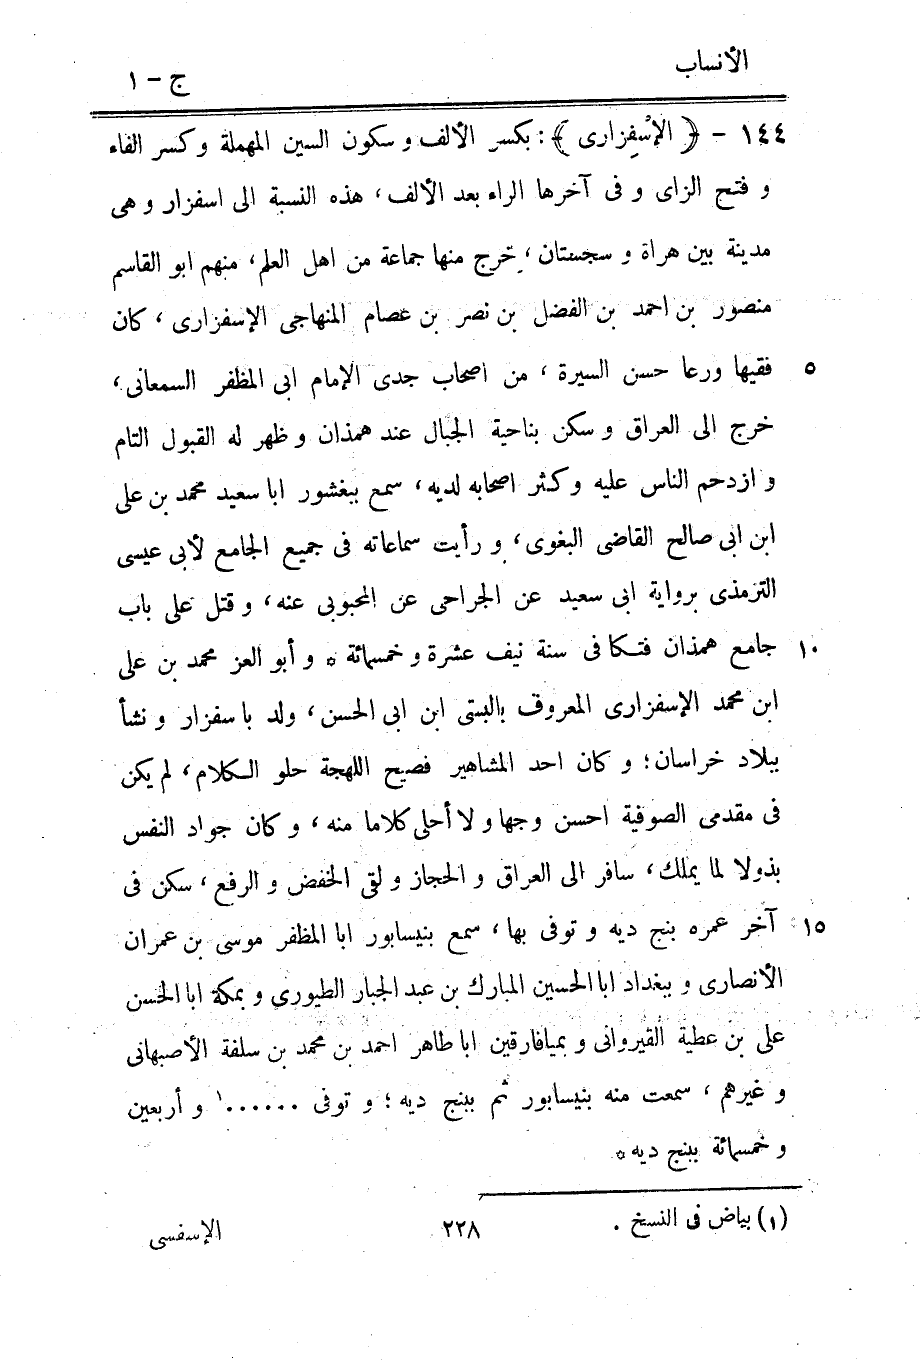 الأنساب
ج – ١
١٤٤ – ﴿ الإسْفِزارى ﴾ : بكسر الألف و سكون السين المهملة و كسر الفاء
و فتح الزاى و فى آخرها الراء بعد الألف ، هذه النسبة الى اسفزار و هى
مدينة بين هراة و سجستان ، خرج منها جماعة من اهل العلم ، منهم ابو القاسم
منصور بن احمد بن الفضل بن نصر بن عصام المنهاجى الإسفزارى ، كان
٥ فقيها ورعا حسن السيرة ، من اصحاب جدى الإمام ابى المظفر السمعانى ،
خرج الى العراق و سكن بناحية الجبال عند همذان و ظهر له القبول التام
و ازدحم الناس عليه و كثر اصحابه لديه ، سمع ببغشور ابا سعيد محمد بن على
ابن ابى صالح القاضى البغوى ، و رأيت سماعاته فى جميع الجامع لأبى عيسى
الترمذى برواية ابى سعيد عن الجراحى عن المحبوبى عنه ، و قتل على باب
١٠ جامع همذان فتكا فى سنة نيف عشرة و خمسمائة * و أبو العز محمد بن على
ابن محمد الإسفزارى المعروف بالبستى ابن ابى الحسن ، ولد باسفزار و نشأ
ببلاد خراسان ؛ و كان احد المشاهير فصيح اللهجة حلو الكلام ، لم يكن
فى مقدمى الصوفية احسن وجها و لا أحلى كلاما منه ، و كان جواد النفس
بذولا لما يملك ، سافر الى العراق و الحجاز و لقى الخفض و الرفع ، سكن فى
١٥ آخر عمره بنج ديه و توفى بها ، سمع بنيسابور ابا المظفر موسى بن عمران
الأنصارى و ببغداد ابا الحسين المبارك بن عبد الجبار الطيورى و بمكة ابا الحسن
على بن عطية القيروانى و بميافارقين ابا طاهر احمد بن محمد بن سلفة الأصبهانى
و غيرهم ، سمعت منه بنيسابور ثم ببنج ديه ؛ و توفى ......١ و أربعين
و خمسمائة ببنج ديه *
(١) بياض فى النسخ .
٢٢٨
الإسفسى